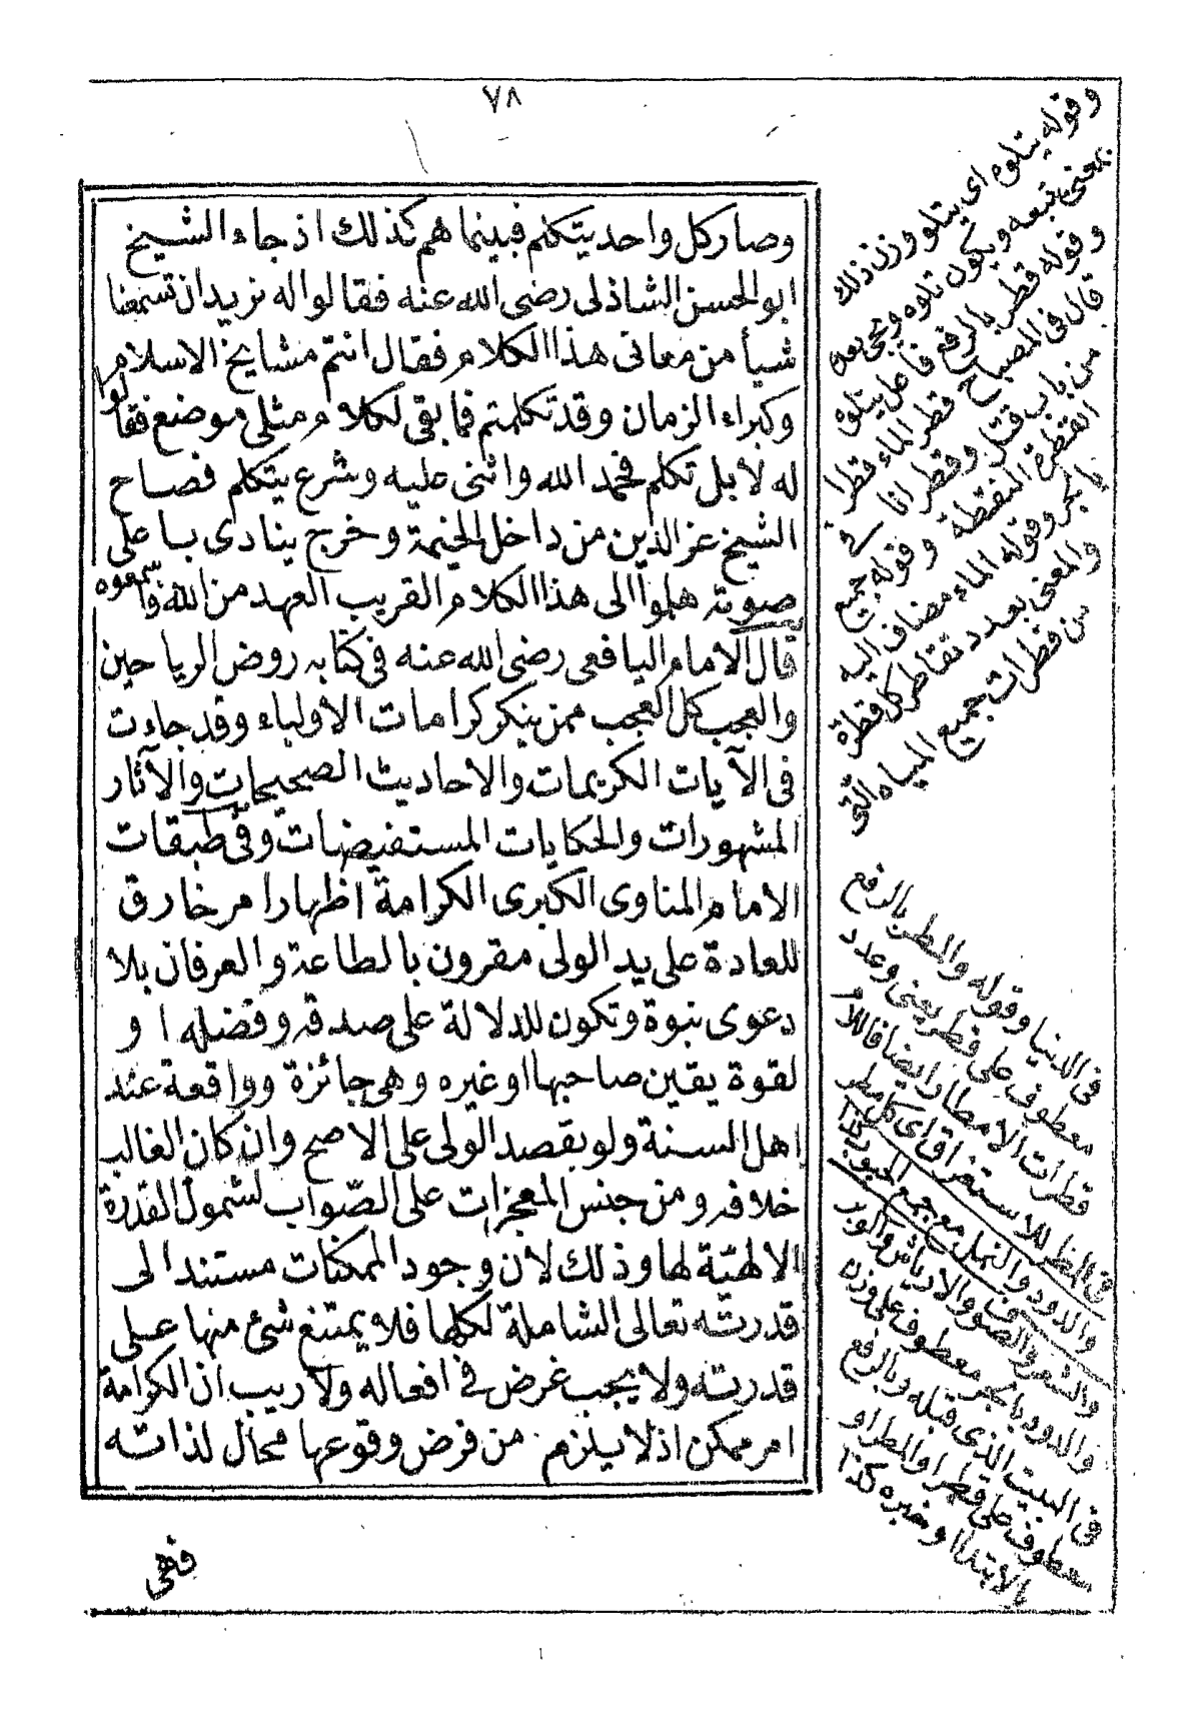 ٧٨
وصار كل واحد يتكلم فبينما هم كذلك اذ جاء الشيخ
ابو الحسن الشاذلى رضى الله عنه فقالوا له نريد ان تسمعنا
شيأ من معانى هذا الكلام فقال انتم مشايخ الاسلام
وكبراء الزمان وقد تكلمتم فما بقى لكلام مثلى موضع فقالوا
له لا بل تكلم فحمد الله واثنى عليه وشرع يتكلم فصاح
الشيخ عز الدين من داخل الخيمة وخرج ينادى باعلى
صوته هلموا الى هذا الكلام القريب العهد من الله فاسمعوه
قال الامام اليافعى رضى الله عنه فى كتابه روض الرياحين
والعجب كل العجب ممن ينكر كرامات الاولياء وقد جاءت
فى الآيات الكريمات والاحاديث الصحيحات والآثار
المشهورات والحكايات المستفيضات وفى طبقات
الامام المناوى الكبرى الكرامة اظهار امر خارق
للعادة على يد الولى مقرون بالطاعة والعرفان بلا
دعوى نبوة وتكون للدلالة على صدقه وفضله او
لقوة يقين صاحبها او غيره وهى جائزة وواقعة عند
اهل السنة ولو بقصد الولى على الاصح وان كان الغالب
خلافه ومن جنس المعجزات على الصّواب لشمول القدرة
الالهيّة لها وذلك لان وجود الممكنات مستندا لى
قدرته تعالى الشاملة لكلها فلا يمتنع شئ منها على
قدرته ولا يجب غرض فى افعاله ولا ريب ان الكرامة
امر ممكن اذ لا يلزم من فرض وقوعها محال لذاته
فهى
وقوله يتلوه اى يتلو وزن ذلك
بمعنى تبعه ويكون تلوه ويجئ بعده
وقوله قطر بالرفع فاعل يتلوه
قال فى المصباح قطر الماء قطرا
من باب قتل وقطرانا
القطرة النقطة وقوله جميع
بالجر وقوله الماء مضاف اليه
والمعنى بعدد تقاطر كل قطرة
من قطرات جميع المياه التى
فى الدنيا وقوله والمطر بالرفع
معطوف على قطر يعنى وعدد
قطرات الامطار ايضا فاللام
فى المطر للاستغراق اى كل مطر
والدود والنمل مع جمع الحبوب كذا
والشعر والصوف والارياش والوبر
والدود بالجر معطوف على وزن
فى البيت الذى قبله وبالرفع
معطوف على قطر او المطر او
بالابتدا وخبره كذا